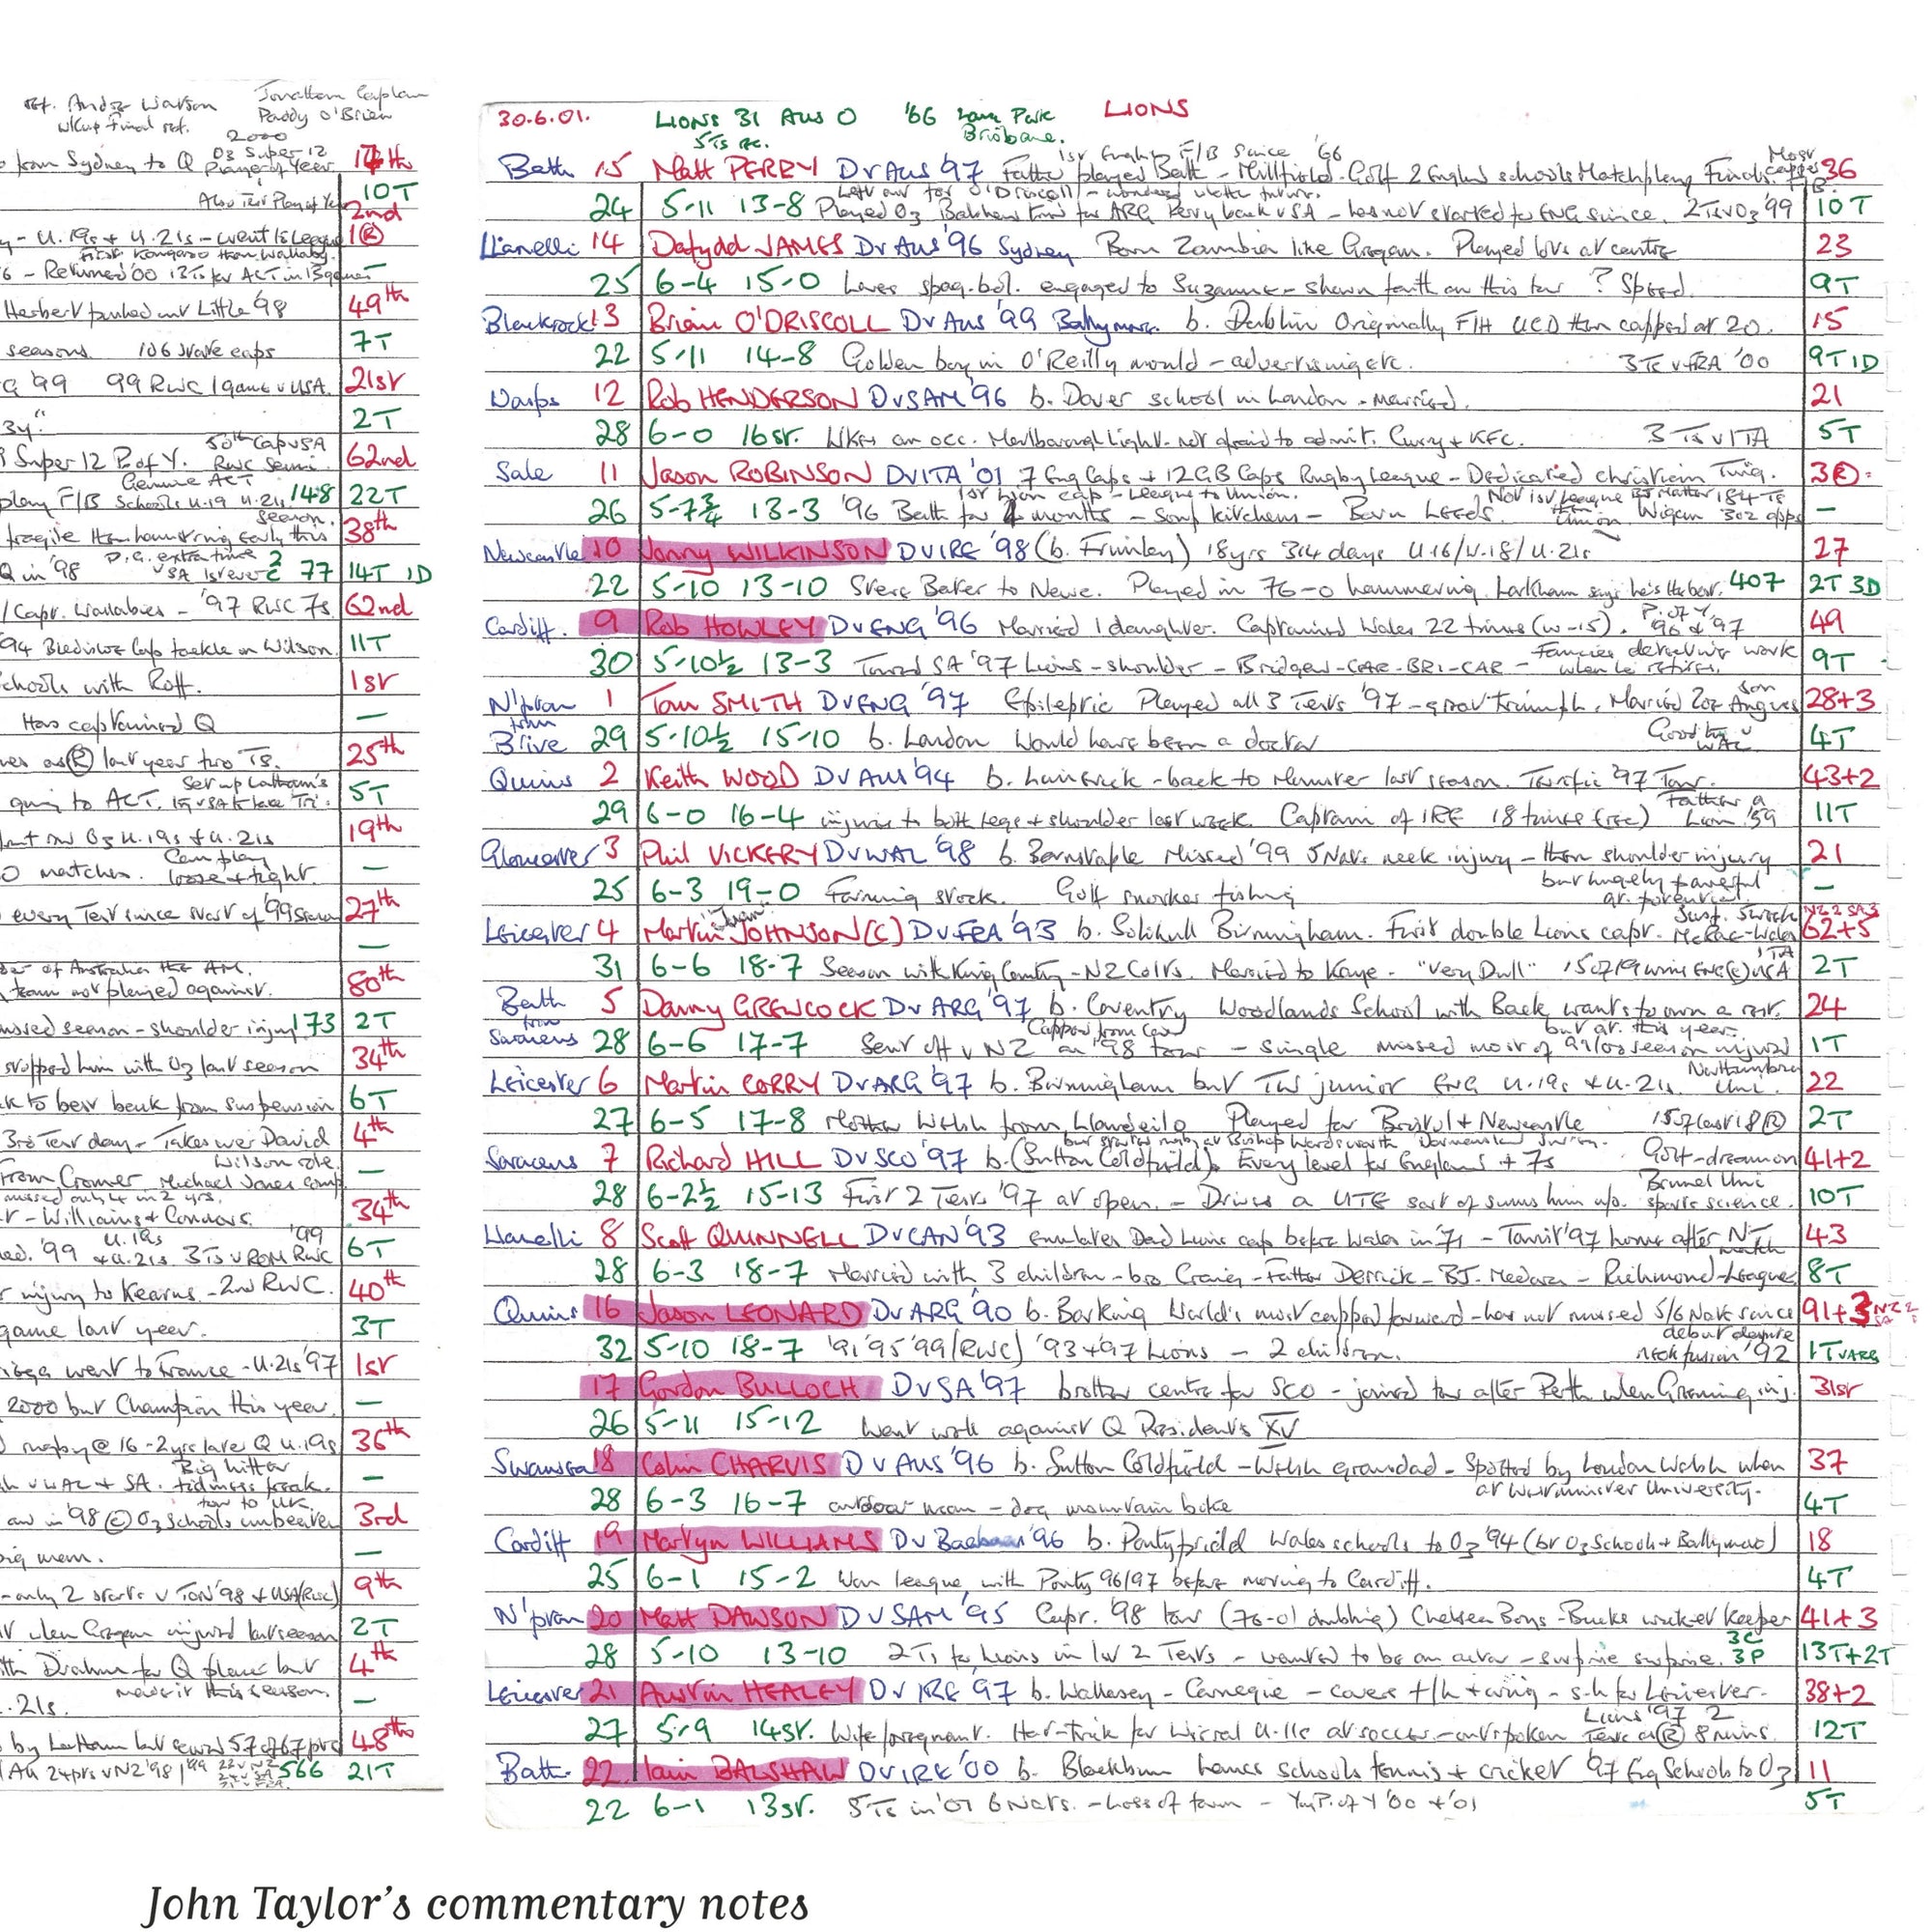 ref. Andre Watson
W/Cup Final ref.
Jonathan Kaplan
Paddy O'Brien
2000
from Sydney to Q
Oz Super 12
Player of Year
10T
2nd
- U.19s & U.21s - went to League
First Kangaroo then Wallaby
6 - Returned '00 13Ts for ACT in 13 games
—
Herbert pushed out Little '98
49th
seasons. 106 state caps
7T
G '99 99 RWC 1 game v USA.
21st
2T
50th cap v SA
RWC Semi
Super 12 P. of Y.
62nd
Genuine ACT
play F/B Schools U.19 U.21s 148
22T
season.
fragile then hamstring early this
38th
D.G. extra time
Q in '98 v SA 1st ever 77
14T 1D
/Capt. Wallabies - '97 RWC 7s
62nd
'94 Bledisloe Cup tackle on Wilson.
11T
schools with Roff.
1st
Has captained Q
—
as (R) last year two Ts.
25th
Set up Latham's
going to ACT.
5T
U.19s & U.21s
19th
0 matches. Can play
loose & tight.
—
every Test since start of '99 season
27th
—
of Australia the AM.
team not played against.
80th
missed season - shoulder injury 173
2T
stopped him with Oz last season
34th
back from suspension
6T
3rd Test day - Takes over David
Wilson role.
4th
From Cromer. Michael Jones comp
—
missed only 4 in 2 yrs.
- Williams & Connors.
34th
U.19s '99
'99 & U.21s 3Ts v ROM RWC
6T
injury to Kearns - 2nd RWC.
40th
game last year.
3T
went to France - U.21s '97
1st
2000 but Champion this year.
—
rugby @ 16 - 2 yrs later Q U.19s
36th
Big hitter
v WAL & SA. tidiness freak.
—
tour to UK.
in '98 (C) Oz Schools unbeaten
3rd
big mem.
—
- only 2 starts v TON '98 & USA (RWC)
9th
when Gregan injured last season
2T
Drahm for Q place but
made it this season.
4th
. 21s.
—
by Latham but 57 of 67 pts
48th
24 pts v NZ '98 '99 566
21T
30.6.01. LIONS 31 AUS 0 '66 Lang Park LIONS
5Ts Brisbane.
1st English F/B since '66
Bath 15 Matt PERRY D v Aus '97 Father played Bath - Millfield - Golf 2 England schools Matchplay Finals. Most capped F/B. 36
Left out for O'Driscoll - wondered whether future.
24 5-11 13-8 Played Oz for ARG Perry back v SA - has not started for ENG since. 2Ts v Oz '99 10T
Llanelli 14 Dafydd JAMES D v Aus '96 Sydney Born Zambia like Gregan. Played lots at centre 23
25 6-4 15-0 Loves spag. bol. engaged to Suzanne - shown faith on this tour ? Speed. 9T
Blackrock 13 Brian O'DRISCOLL D v Aus '99 Ballymore. b. Dublin Originally F/H UCD then capped at 20. 15
22 5-11 14-8 Golden boy in O'Reilly mould - advertising etc. 3Ts v FRA '00 9T 1D
Wasps 12 Rob HENDERSON D v SAM '96 b. Dover school in London - Married. 21
28 6-0 16st. Likes an occ. Marlborough Light - not afraid to admit. Curry & KFC. 3Ts v ITA 5T
Sale 11 Jason ROBINSON D v ITA '01 7 Eng Caps & 12 GB Caps Rugby League - Dedicated christian Twig. 3(R)
1st Lion cap - League to Union. Not 1st League then Union BJ Mather 184 Ts
26 5-7¾ 13-3 '96 Bath for 4 months - Soup kitchens - Born Leeds. Wigan 302 apps —
Newcastle 10 Jonny WILKINSON D v IRE '98 (b. Frimley) 18yrs 314 days U.16/U.18/U.21s 27
22 5-10 13-10 Steve Bates to Newc. Played in 76-0 hammering. Larkham says he's the best. 407 2T 3D
Cardiff. 9 Rob HOWLEY D v ENG '96 Married 1 daughter. Captained Wales 22 times (w-15). P. of Y. '96 & '97 49
30 5-10½ 13-3 Toured SA '97 Lions - shoulder - Bridgend - CAR - BRI - CAR - Fancies detective work when he retires. 9T
N'pton 1 Tom SMITH D v ENG '97 Epileptic Played all 3 Tests '97 - great triumph. Married Zoe son Angus 28+3
from
Brive 29 5-10½ 15-10 b. London Would have been a doctor Good try v WAL 4T
Quins 2 Keith WOOD D v Aus '94 b. Limerick - back to Munster last season. Terrific '97 Tour. 43+2
29 6-0 16-4 injuries to both legs & shoulder last week. Captain of IRE 18 times (rec) Father a Lion '59 11T
Gloucester 3 Phil VICKERY D v WAL '98 b. Barnstaple Missed '99 5 Nats neck injury - then shoulder injury 21
25 6-3 19-0 Farming stock. Golf snooker fishing but hugely powerful gt. potential. —
Leicester 4 Martin JOHNSON (C) D v FRA '93 b. Solihull Birmingham. First double Lions capt. NZ 2 SA 3 62+5
31 6-6 18-7 Season with King Country - NZ Colts. Married to Kaye - "Very Dull" 15 of 19 wins ENG (C) v SA ITA 2T
Bath 5 Danny GREWCOCK D v ARG '97 b. Coventry Woodlands School with Back wants to own a rest. 24
from Capped from Cov
Saracens 28 6-6 17-7 Sent off v NZ on '98 tour - single missed most of 99/00 season injured but gt. this year. 1T
Leicester 6 Martin CORRY D v ARG '97 b. Birmingham but TW junior ENG U.19s & U.21s Northumbria Uni. 22
27 6-5 17-8 Mother Welsh from Llandeilo Played for Bristol & Newcastle 15 of last 18 (R) 2T
but started rugby at Bishop Wordsworth
Saracens 7 Richard HILL D v SCO '97 b. (Sutton Coldfield). Every level for England & 7s Golf - dream on 41+2
28 6-2½ 15-13 First 2 Tests '97 at open. - Drives a UTE sort of sums him up. Brunel Uni sports science. 10T
Llanelli 8 Scott QUINNELL D v CAN '93 emulates Dad Lions cap before Wales in '71 - Tour '97 home after match 43
28 6-3 18-7 Married with 3 children - bro Craig - Father Derrick - BJ. - Richmond - League 8T
Quins 16 Jason LEONARD D v ARG '90 b. Barking World's most capped forward - has not missed 5/6 Nats since 91+3
32 5-10 18-7 '91 '95 '99 (RWC) '93 & '97 Lions - 2 children. debut despite neck fusion '92 1T v ARG
17 Gordon BULLOCH D v SA '97 brother centre for SCO - joined tour after Perth when Greening inj. 31st
26 5-11 15-12 Went well against Q President's XV
Swansea 18 Colin CHARVIS D v Aus '96 b. Sutton Coldfield - Welsh grandad - Spotted by London Welsh when 37
28 6-3 16-7 outdoor man - dog mountain bike at Westminster University. 4T
Cardiff 19 Martyn WILLIAMS D v '96 b. Pontypridd Wales schools to Oz '94 (bt Oz Schools & Ballymore) 18
25 6-1 15-2 Won league with Ponty 96/97 before moving to Cardiff. 4T
N'pton 20 Matt DAWSON D v SAM '95 Capt. '98 tour (76-0) drubbing) Chelsea Boys - Bucks wicket keeper 41+3
28 5-10 13-10 2Ts for Lions in 1st 2 Tests - wanted to be an actor - surprise surprise. 3C 3P 13T+2T
Leicester 21 Austin HEALEY D v IRE '97 b. Wallasey - Carnegie - covers f/h & wing - s-h for Leicester - 38+2
27 5-9 14st. Wife pregnant. Hat-trick for Wirral U-11s at soccer - outspoken Lions '97 2 Tests as (R) 8 mins. 12T
Bath. 22 Iain BALSHAW D v IRE '00 b. Blackburn Lancs schools tennis & cricket '97 Eng Schools to Oz 11
22 6-1 13st. 5Ts in '01 6 Nats. - Loss of form - Yng P. of Y '00 & '01 5T
John Taylor's commentary notes